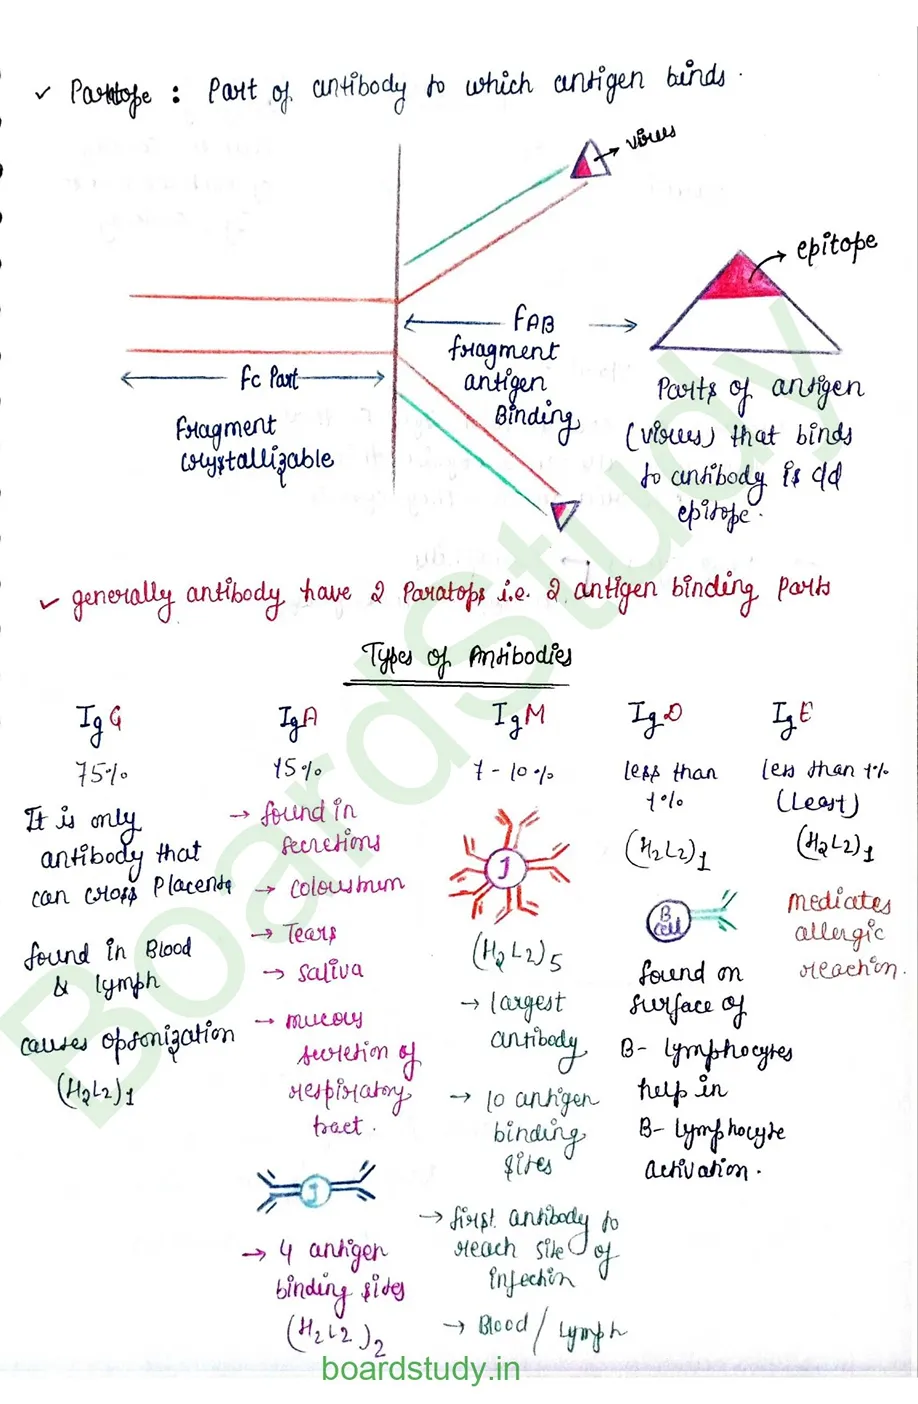 ✓ Paratope : Part of antibody to which antigen binds.
virus
epitope
FAB
fragment
antigen
Binding
Fc Part
Fragment
crystallizable
Parts of antigen
(virus) that binds
to antibody is c/d
epitope.
✓ generally antibody have 2 Paratops i.e. 2 antigen binding parts
Types of Antibodies
IgG
75%
It is only
antibody that
can cross Placenta
found in Blood
& lymph
causes opsonization
(H2L2)1
IgA
15%
→ found in
secretions
→ colousturm
→ Tears
→ saliva
→ mucous
secretion of
respiratory
tract.
J
→ 4 antigen
binding sites
(H2L2)2
IgM
7-10%
J
(H2L2)5
→ largest
antibody
→ 10 antigen
binding
sites
→ first antibody to
reach site of
infection
→ Blood / lymph
IgD
less than
1%
(H2L2)1
B
cell
found on
surface of
B- lymphocytes
help in
B- lymphocyte
activation.
IgE
less than 1%
(Least)
(H2L2)1
mediates
allergic
reaction.
BoardStudy
boardstudy.in